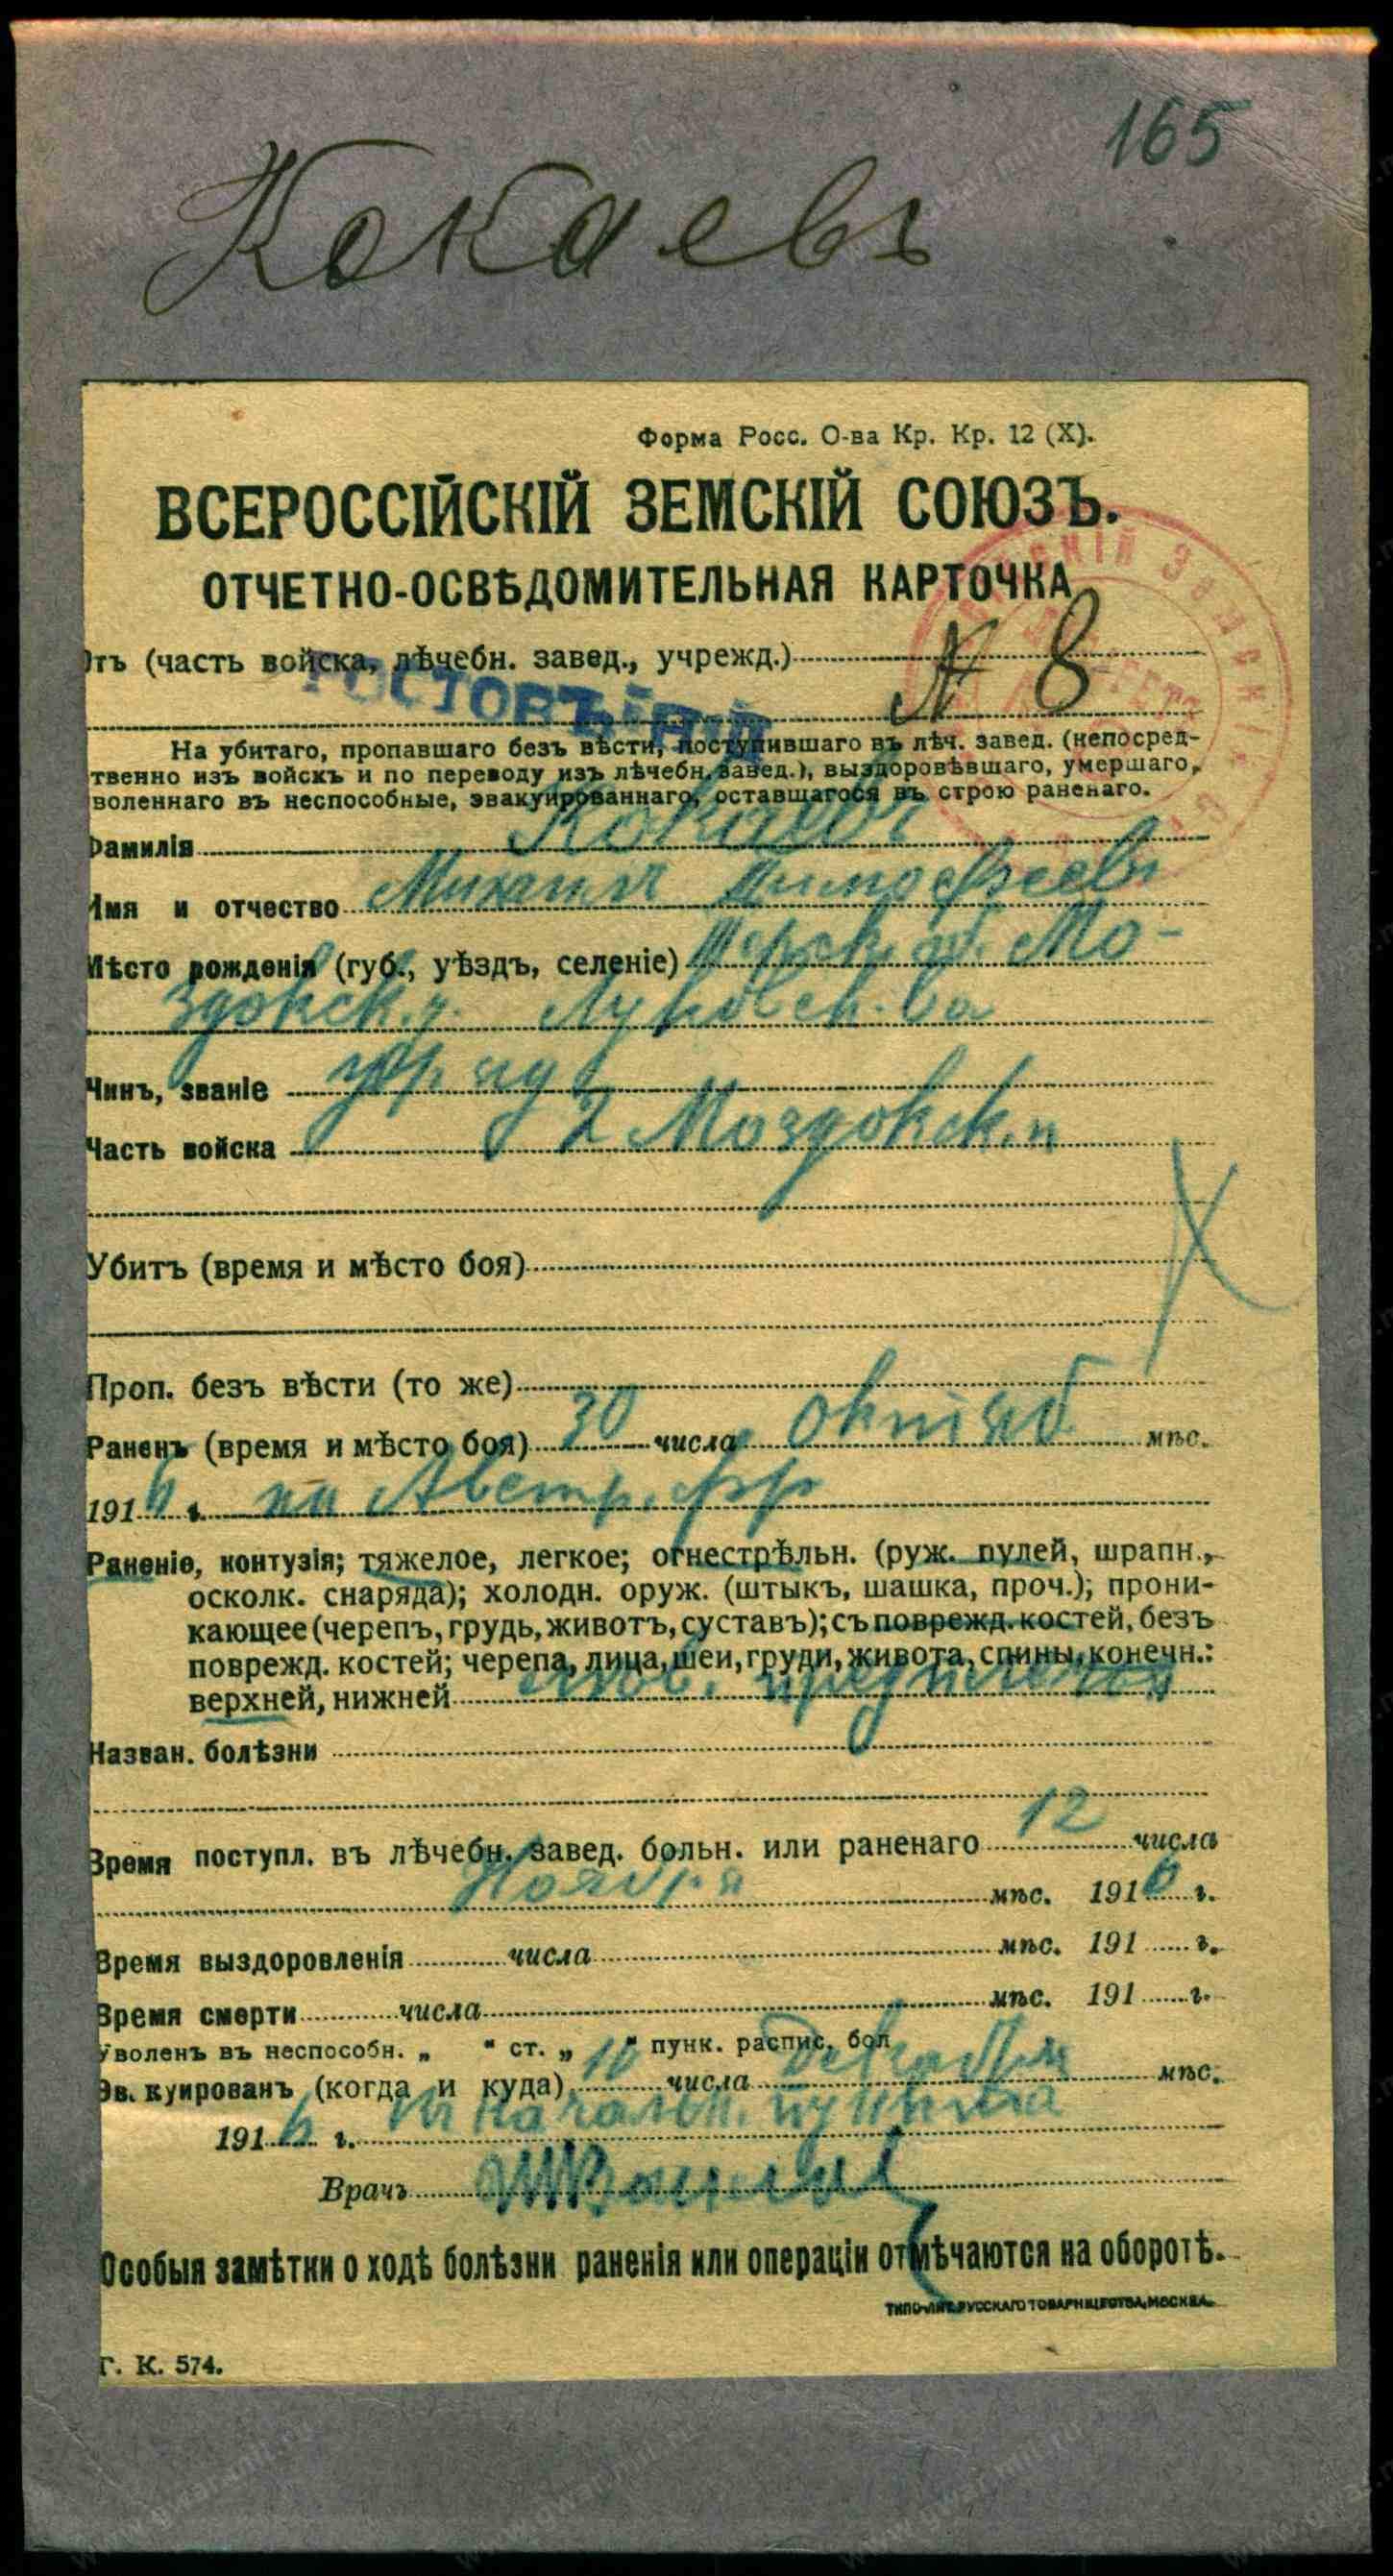 165
Кокаевъ
Форма Росс. О-ва Кр. Кр. 12 (X).
ВСЕРОССІЙСКІЙ ЗЕМСКІЙ СОЮЗЪ.
ОТЧЕТНО-ОСВѢДОМИТЕЛЬНАЯ КАРТОЧКА
Отъ (часть войска, лѣчебн. завед., учрежд.) № 8
РОСТОВЪ
На убитаго, пропавшаго безъ вѣсти, поступившаго въ лѣч. завед. (непосред-
твенно изъ войскъ и по переводу изъ лѣчебн. завед.), выздоровѣвшаго, умершаго,
воленнаго въ неспособные, эвакуированнаго, оставшагося въ строю раненаго.
Фамилія Кокаевъ
Имя и отчество Михаилъ Тимофеевъ
Мѣсто рожденія (губ., уѣздъ, селеніе) Терск. об. Мо-
здокск. Луковск.
Чинъ, званіе
Часть войска 2 Моздокск. п
Убитъ (время и мѣсто боя)
Проп. безъ вѣсти (то же)
Раненъ (время и мѣсто боя) 30 числа октяб мѣс.
1916 г. на Австр. фр
Раненіе, контузія; тяжелое, легкое; огнестрѣльн. (руж. пулей, шрапн.,
осколк. снаряда); холодн. оруж. (штыкъ, шашка, проч.); прони-
кающее (черепъ, грудь, животъ, суставъ); съ поврежд. костей, безъ
поврежд. костей; черепа, лица, шеи, груди, живота, спины, конечн.:
верхней, нижней предплечья
Назван. болѣзни
Время поступл. въ лѣчебн. завед. больн. или раненаго 12 числа
Ноября мѣс. 1916 г.
Время выздоровленія числа мѣс. 191 г.
Время смерти числа мѣс. 191 г.
Уволенъ въ неспособн. „ “ ст. „ “ пунк. распис. бол
Эв. куированъ (когда и куда) 10 числа Декабря мѣс.
1916 г. начальн. пункта
Врачъ
Особыя замѣтки о ходѣ болѣзни раненія или операціи отмѣчаются на оборотѣ.
ТИПО-ЛИТ. РУССКАГО ТОВАРИЩЕСТВА, МОСКВА.
Г. К. 574.